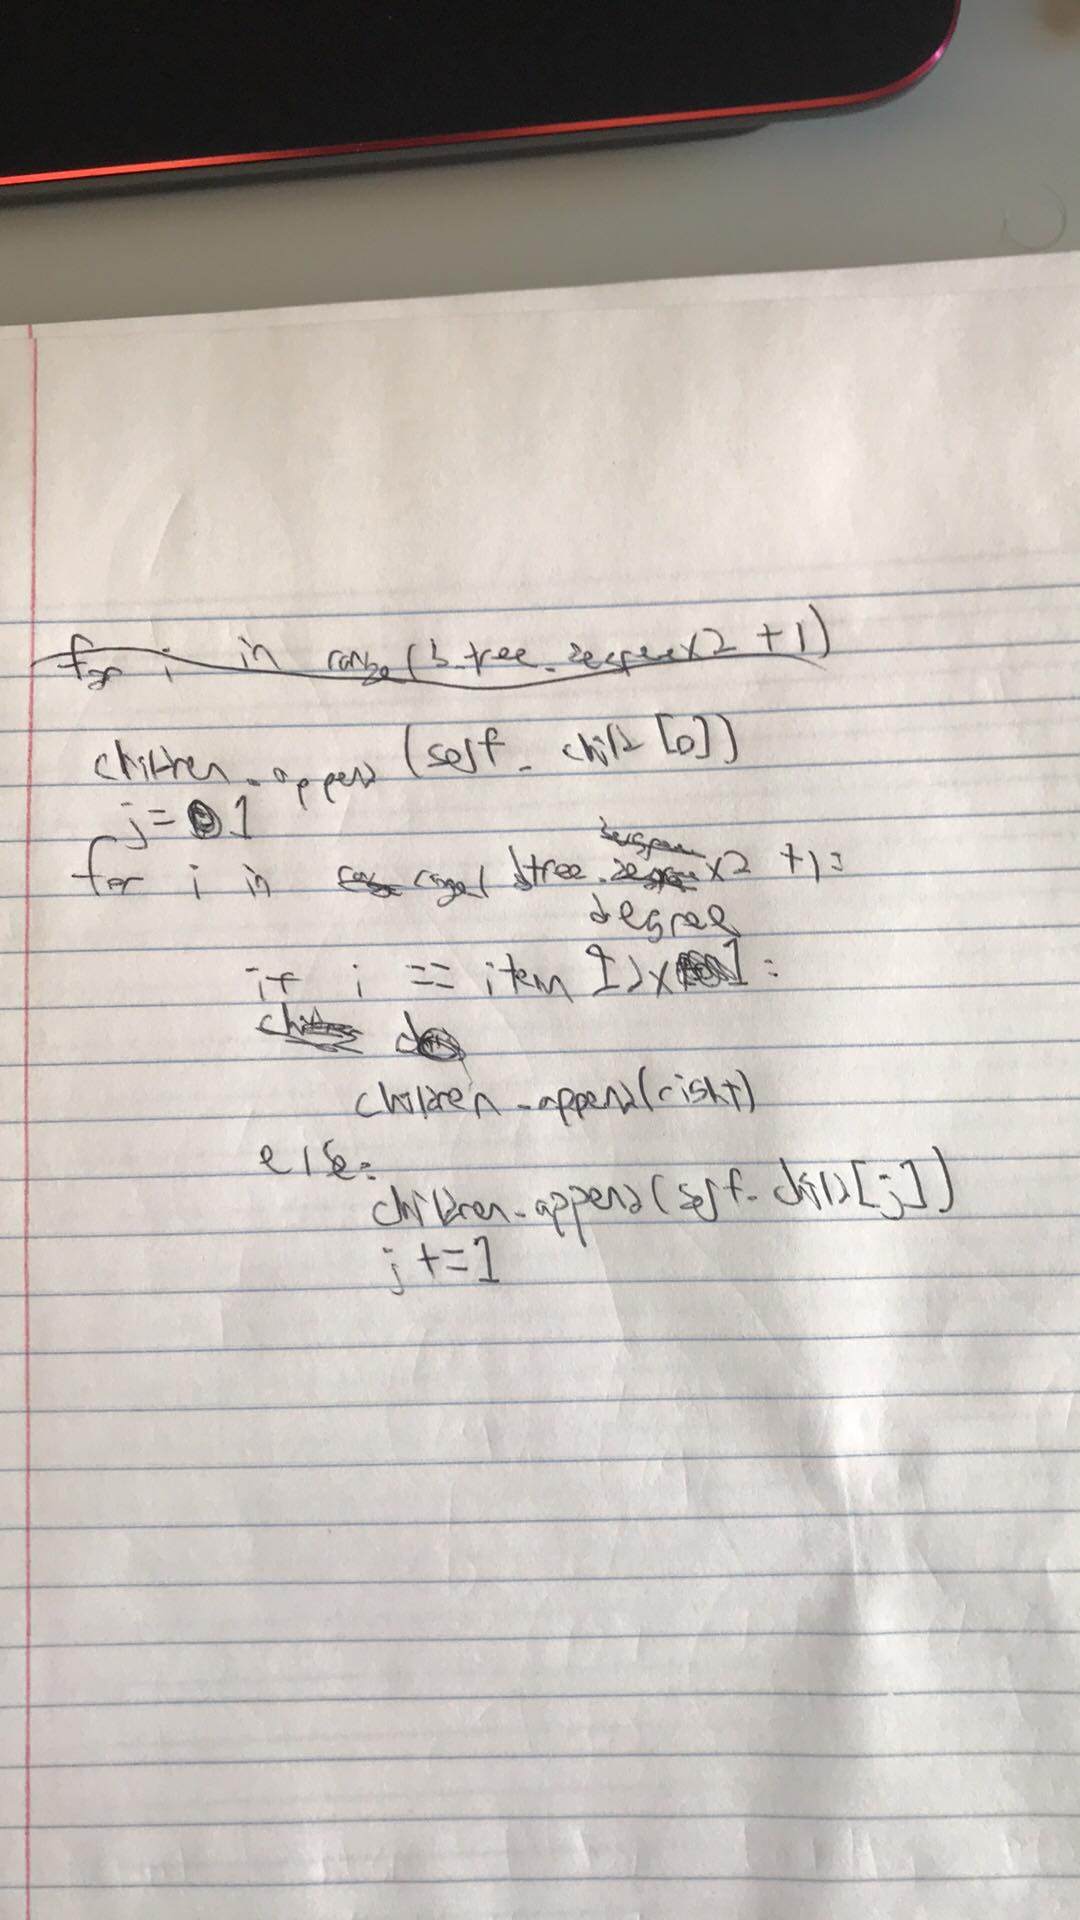 for i in range(b-tree.degree x2 +1)
children.append(self.child[0])
j=1
for i in range(btree.degree x2 +1:
if i == item Idx 1:
children.append(right)
else:
children.append(self.child[j])
j+=1